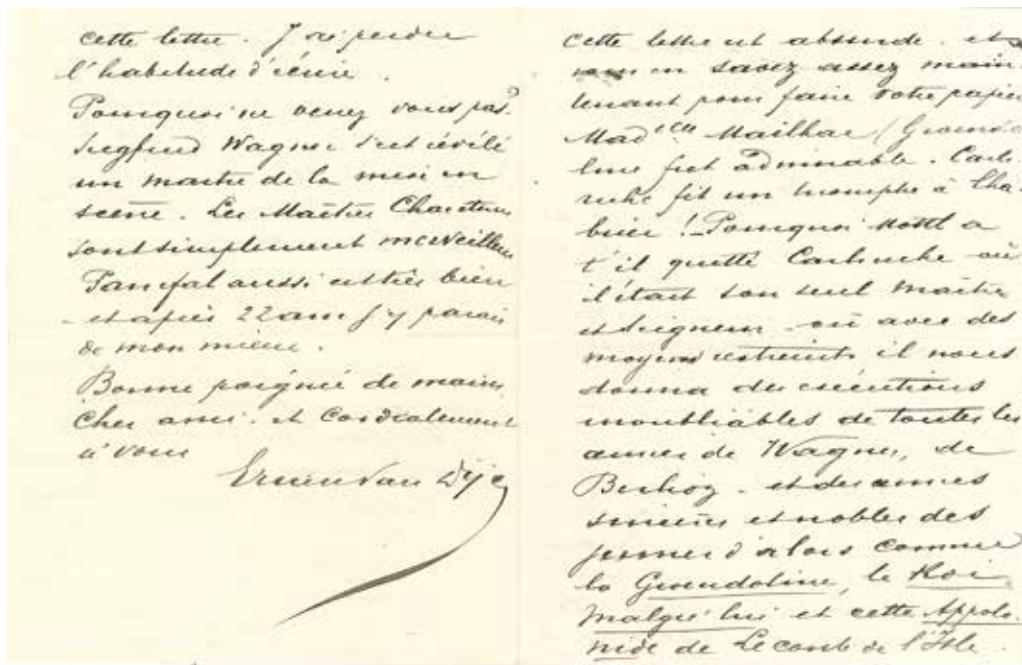 cette lettre. J'ai perdu
l'habitude d'écrire.
Pourquoi ne venez vous pas?
Siegfried Wagner s'est révélé
un maître de la mise en
scène. Les Maîtres Chanteurs
sont simplement merveilleux
Parsifal aussi est très bien
et après 22 ans j'y parais
de mon mieux.
Bonne poignée de mains
cher ami. et cordialement
à vous
Ernest Van Dyc
cette lettre est absurde. et
vous en savez assez main
tenant pour faire votre papier
Mad Mailhac (Gwendo
line fut admirable. Carls
ruhe fit un triomphe à Cha
brier! Pourquoi Mottl a
t'il quitté Carlsruhe où
il était son seul maître
et Seigneur où avec des
moyens restreints il nous
donna des exécutions
inoubliables de toutes les
œuvres de Wagner, de
Berlioz. et des œuvres
sincères et nobles des
jeunes d'alors comme
la Gwendoline, le Roi
malgré lui et cette Appolo
nide de Leconte de l'Isle.